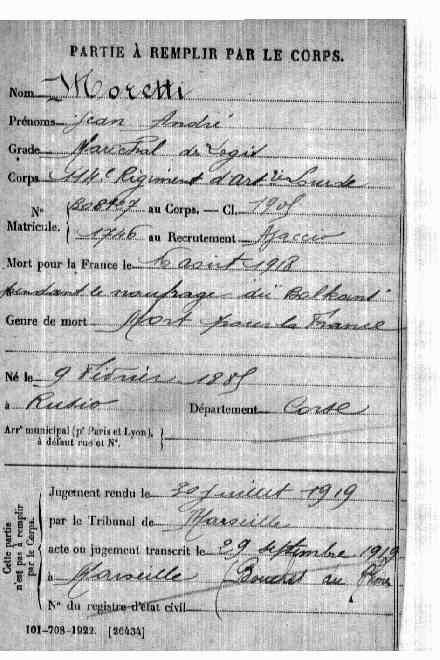 PARTIE À REMPLIR PAR LE CORPS.
Nom Moretti
Prénoms Jean André
Grade Maréchal de Logis
Corps 114e Régiment d'Artie Lourde
N° Matricule. au Corps. — Cl. 1905
1746 au Recrutement Ajaccio
Mort pour la France le 16 août 1918
pendant le naufrage du "Balkant"
Genre de mort Mort pour la France
Né le 9 Février 1885
à Rusio Département Corse
Arrt municipal (pr Paris et Lyon),
à défaut rue et N°.
Cette partie n'est pas à remplir par le Corps.
Jugement rendu le 30 juillet 1919
par le Tribunal de Marseille
acte ou jugement transcrit le 29 septembre 1919
à Marseille (Bouches du Rhône
N° du registre d'état civil
101-708-1922. [26434]